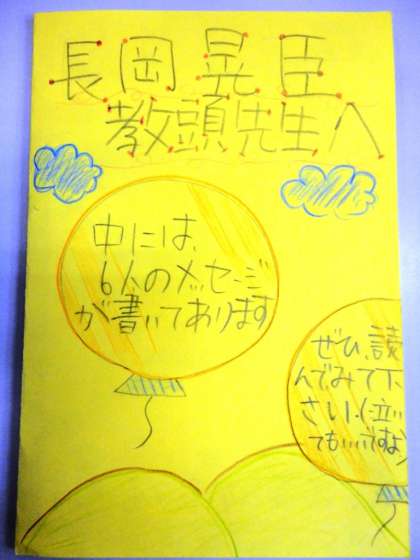 長岡晃臣
教頭先生へ
中には、
6人のメッセージ
が書いてあります
ぜひ、読
んでみて下
さい。(泣い
てもいいですよ)